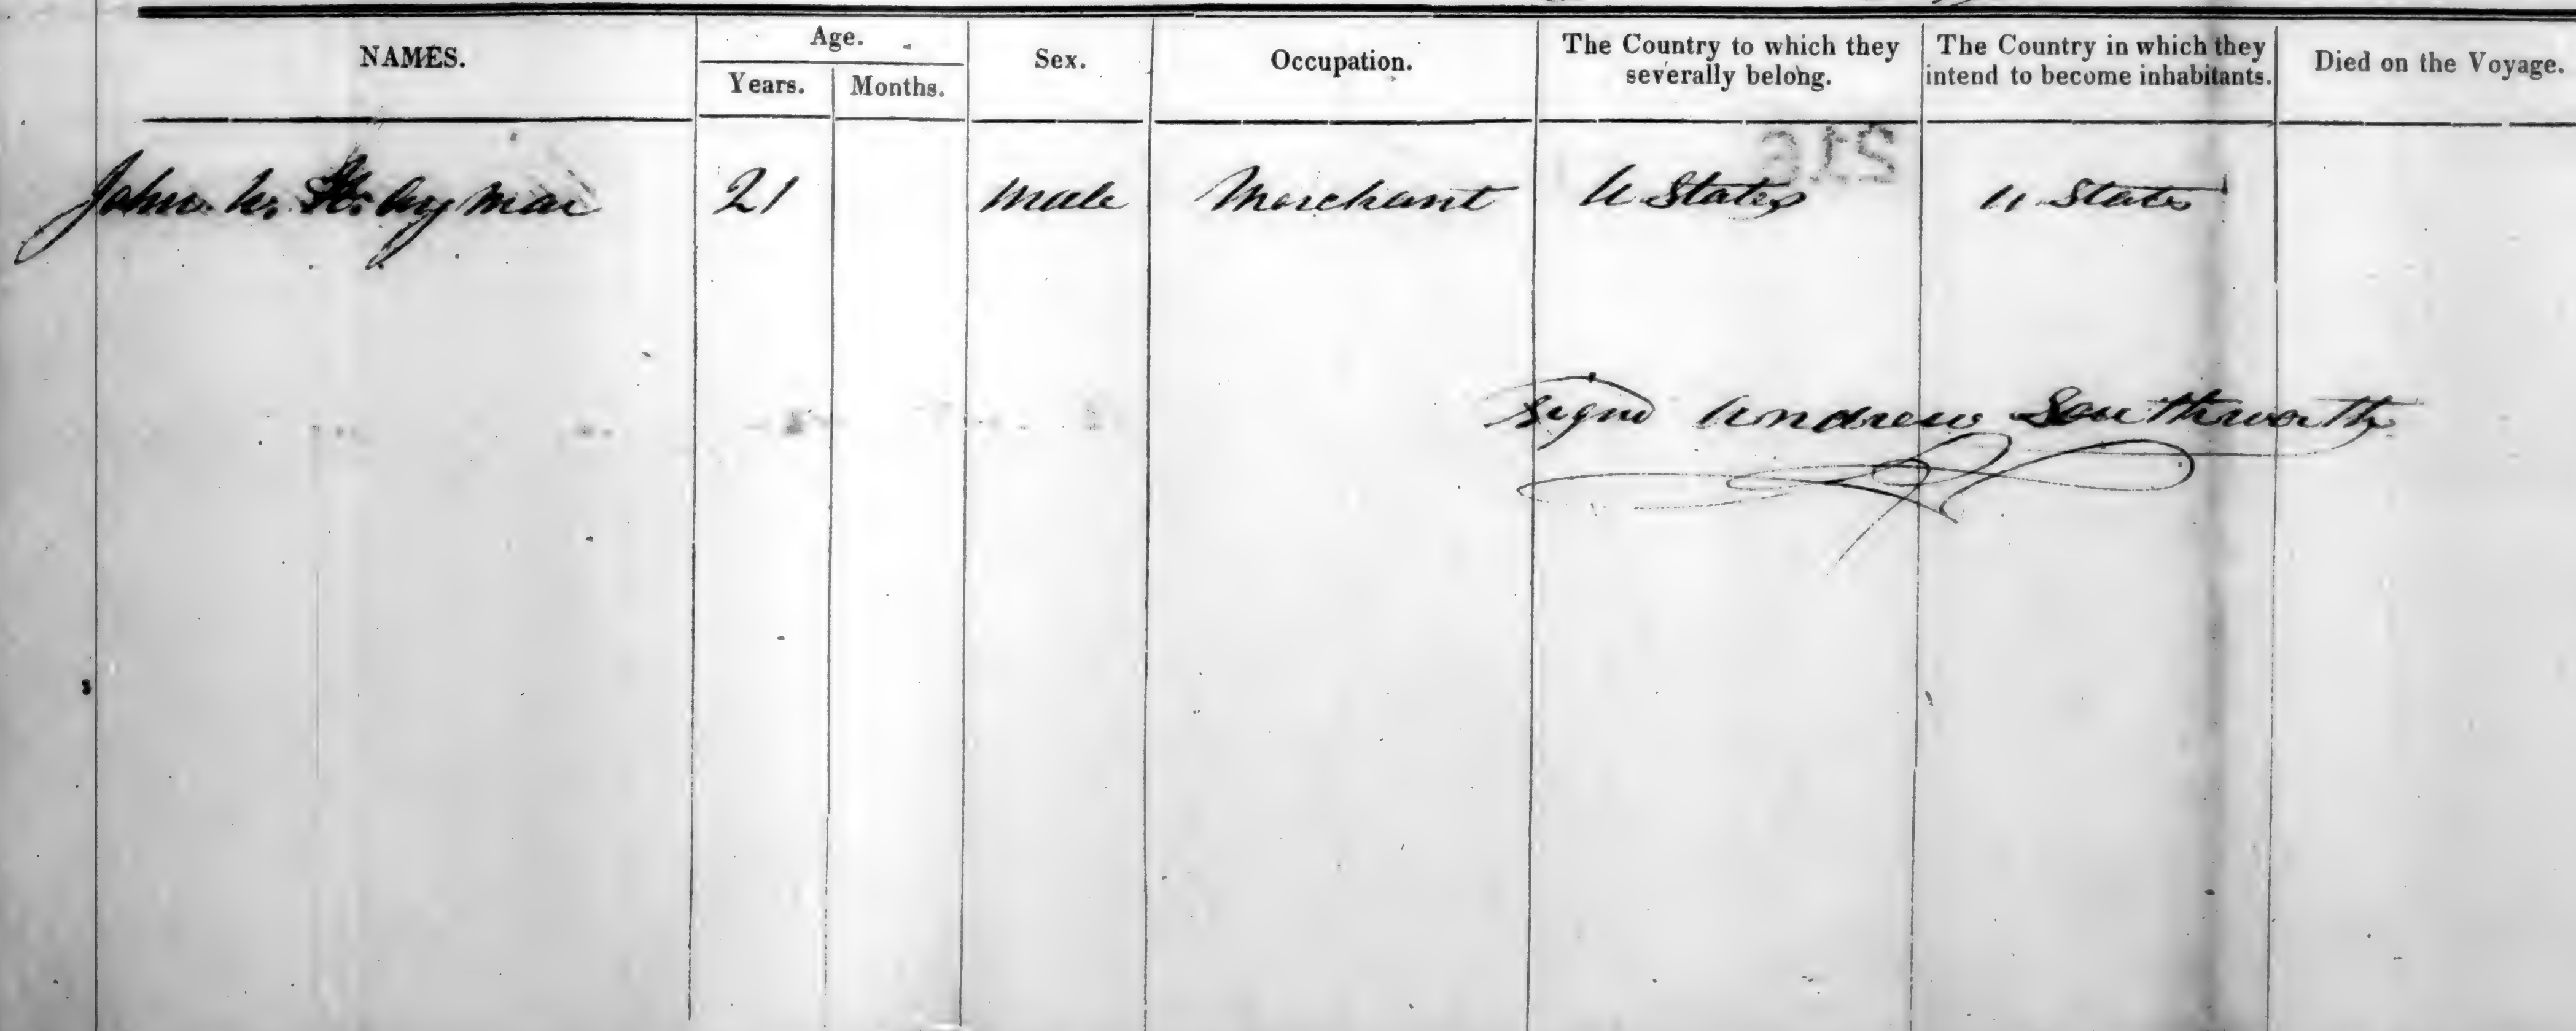 NAMES. Age. Sex. Occupation. The Country to which they severally belong. The Country in which they intend to become inhabitants. Died on the Voyage.
Years. Months.
John 21 Male Merchant U States U States
Signd Andrew Southworth